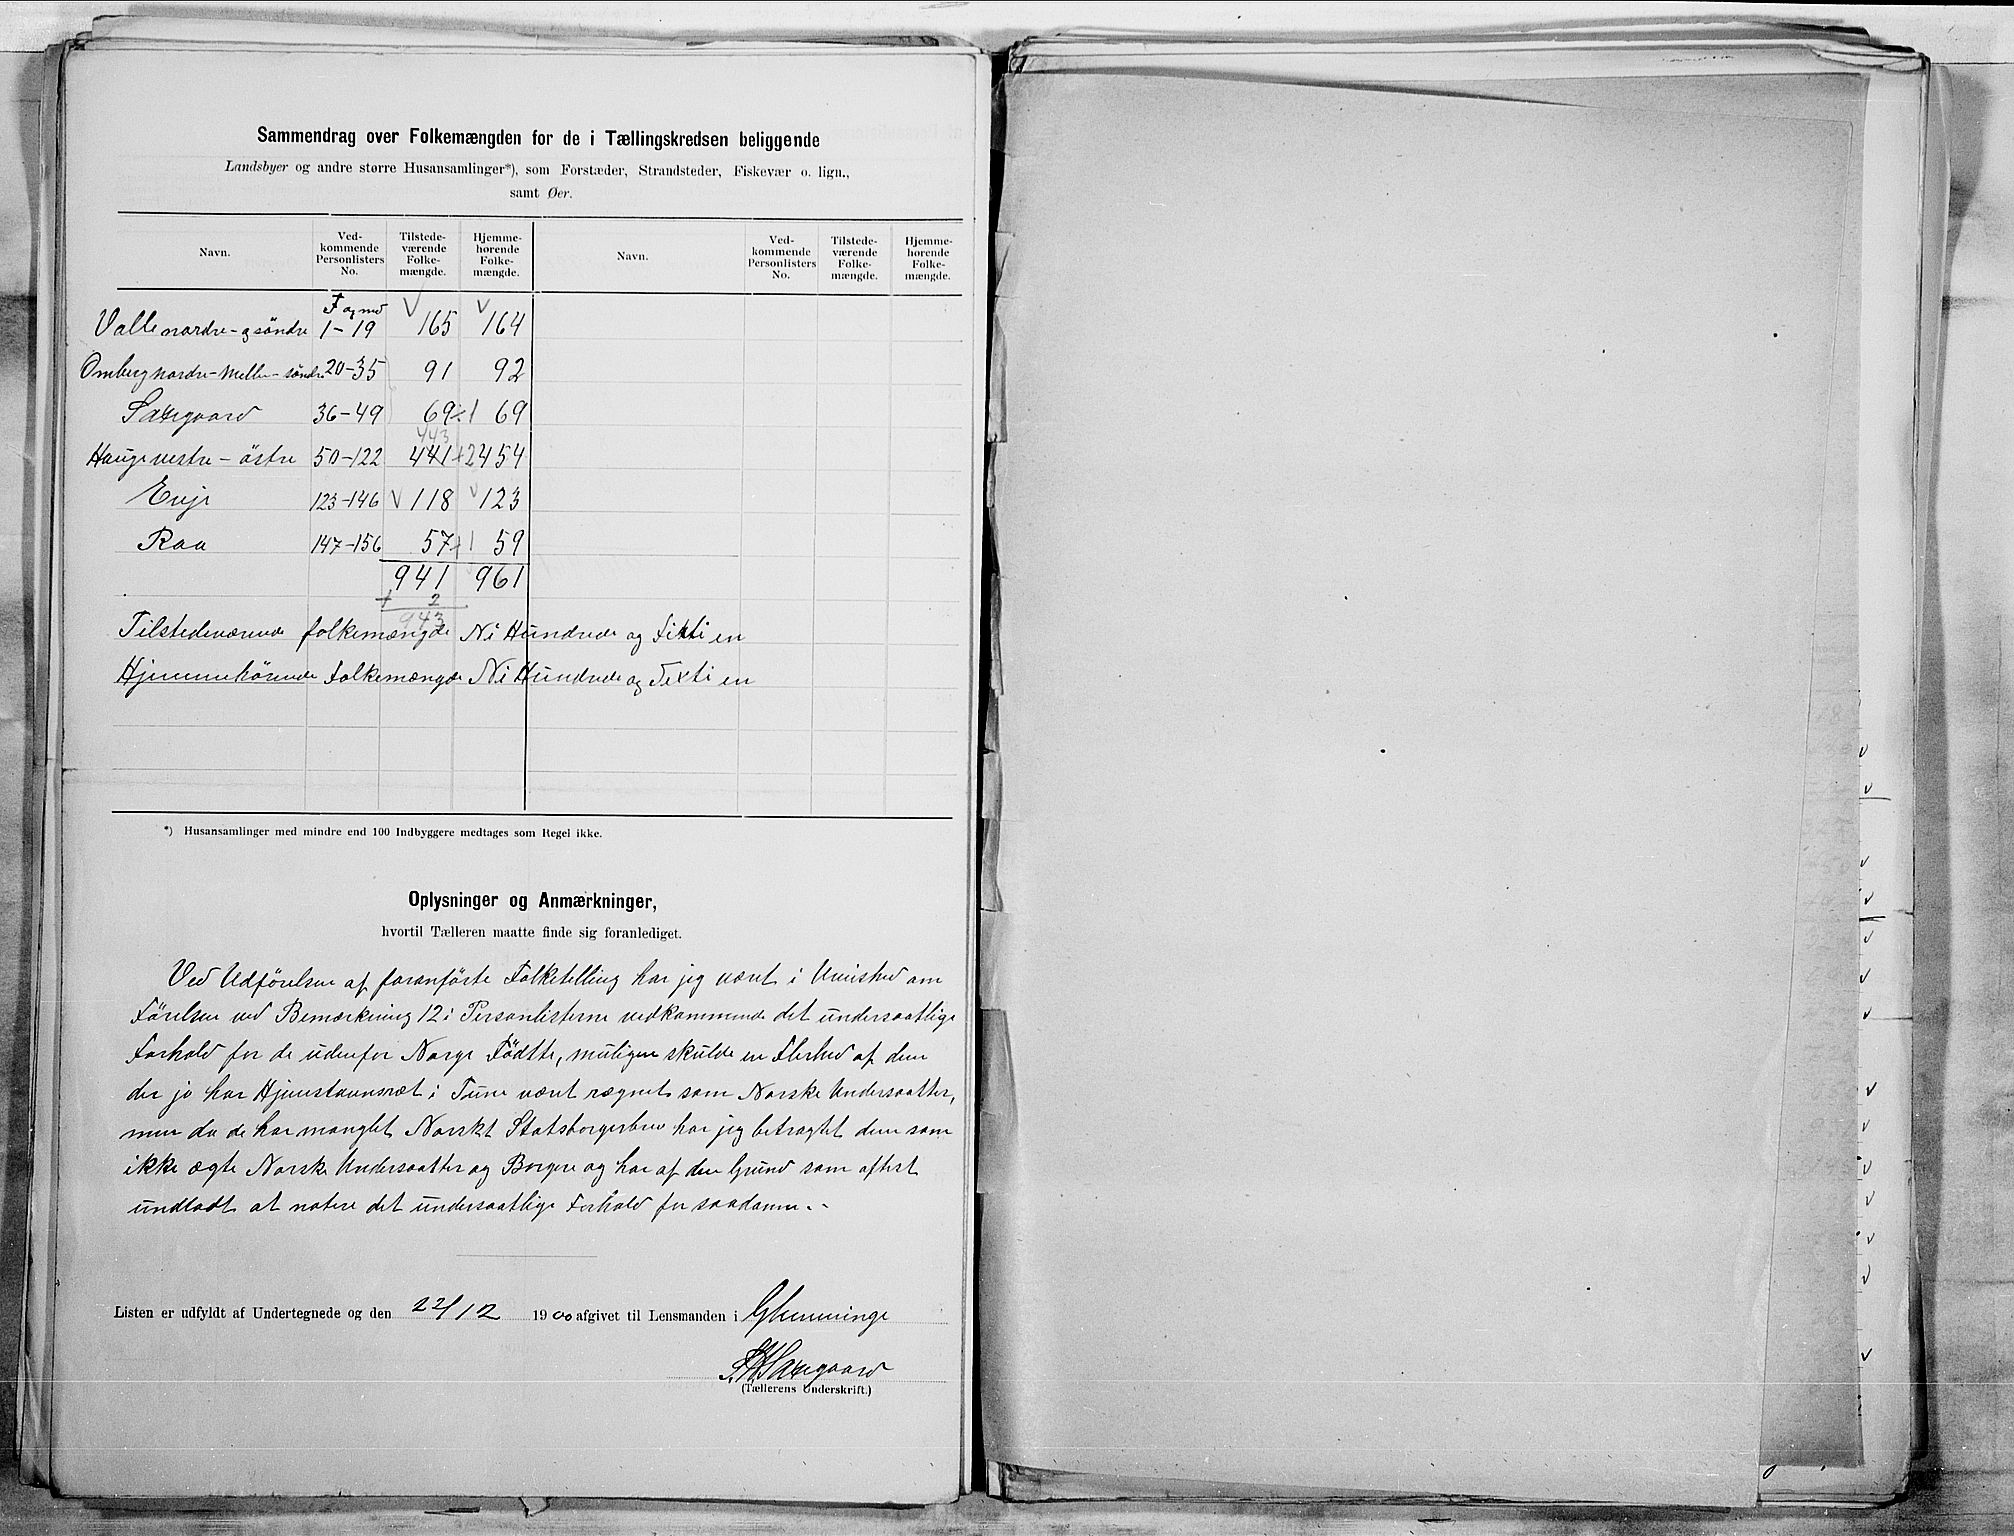 Sammendrag over Folkemængden for de i Tællingskredsen beliggende
Landsbyer og andre større Husansamlinger*), som Forstæder, Strandsteder, Fiskevær o. lign.,
samt Øer.
Navn. Ved-kommende Personlisters No. Tilstede-værende Folke-mængde. Hjemme-hørende Folke-mængde. Navn. Ved-kommende Personlisters No. Tilstede-værende Folke-mængde. Hjemme-hørende Folke-mængde.
Fra og med
Valle nordre - og söndre 1-19 165 164
Omberg nordre - Melle - söndre 20-35 91 92
Saxegaard 36-49 69 ÷1 69
443
Hauge vestre - östre 50-122 441 +2 454
Evje 123-146 118 123
Raa 147-156 57 +1 59
941 961
+ 2
943
Tilstedeværende folkemængde Ni Hundrede og Firti en
Hjemmehörende Folkemængde Ni Hundrede og Sexti en
*) Husansamlinger med mindre end 100 Indbyggere medtages som Regel ikke.
Oplysninger og Anmærkninger,
hvortil Tælleren maatte finde sig foranlediget.
Ved Udförelsen af foranförte Folketelling har jeg været i Uvished om
Förelsen ved Bemærkning 12 i Personlisterne vedkommende det undersaatlige
Forhold for de udenfor Norge Födte, muligens skulde en Flerhed af dem
der jo har Hjemstavnsræt i Tune været rægnet som Norske Undersaatter,
men da de har manglet Norskt Statsborgerbrev har jeg betragtet dem som
ikke ægte Norske Undersaatter og Borgere og har af den Grund som oftest
undladt at notere det undersaatlige Forhold for saadanne.-
Listen er udfyldt af Undertegnede og den 22/12 1900 afgivet til Lensmanden i Glemminge
Saxegaard
(Tællerens Underskrift.)